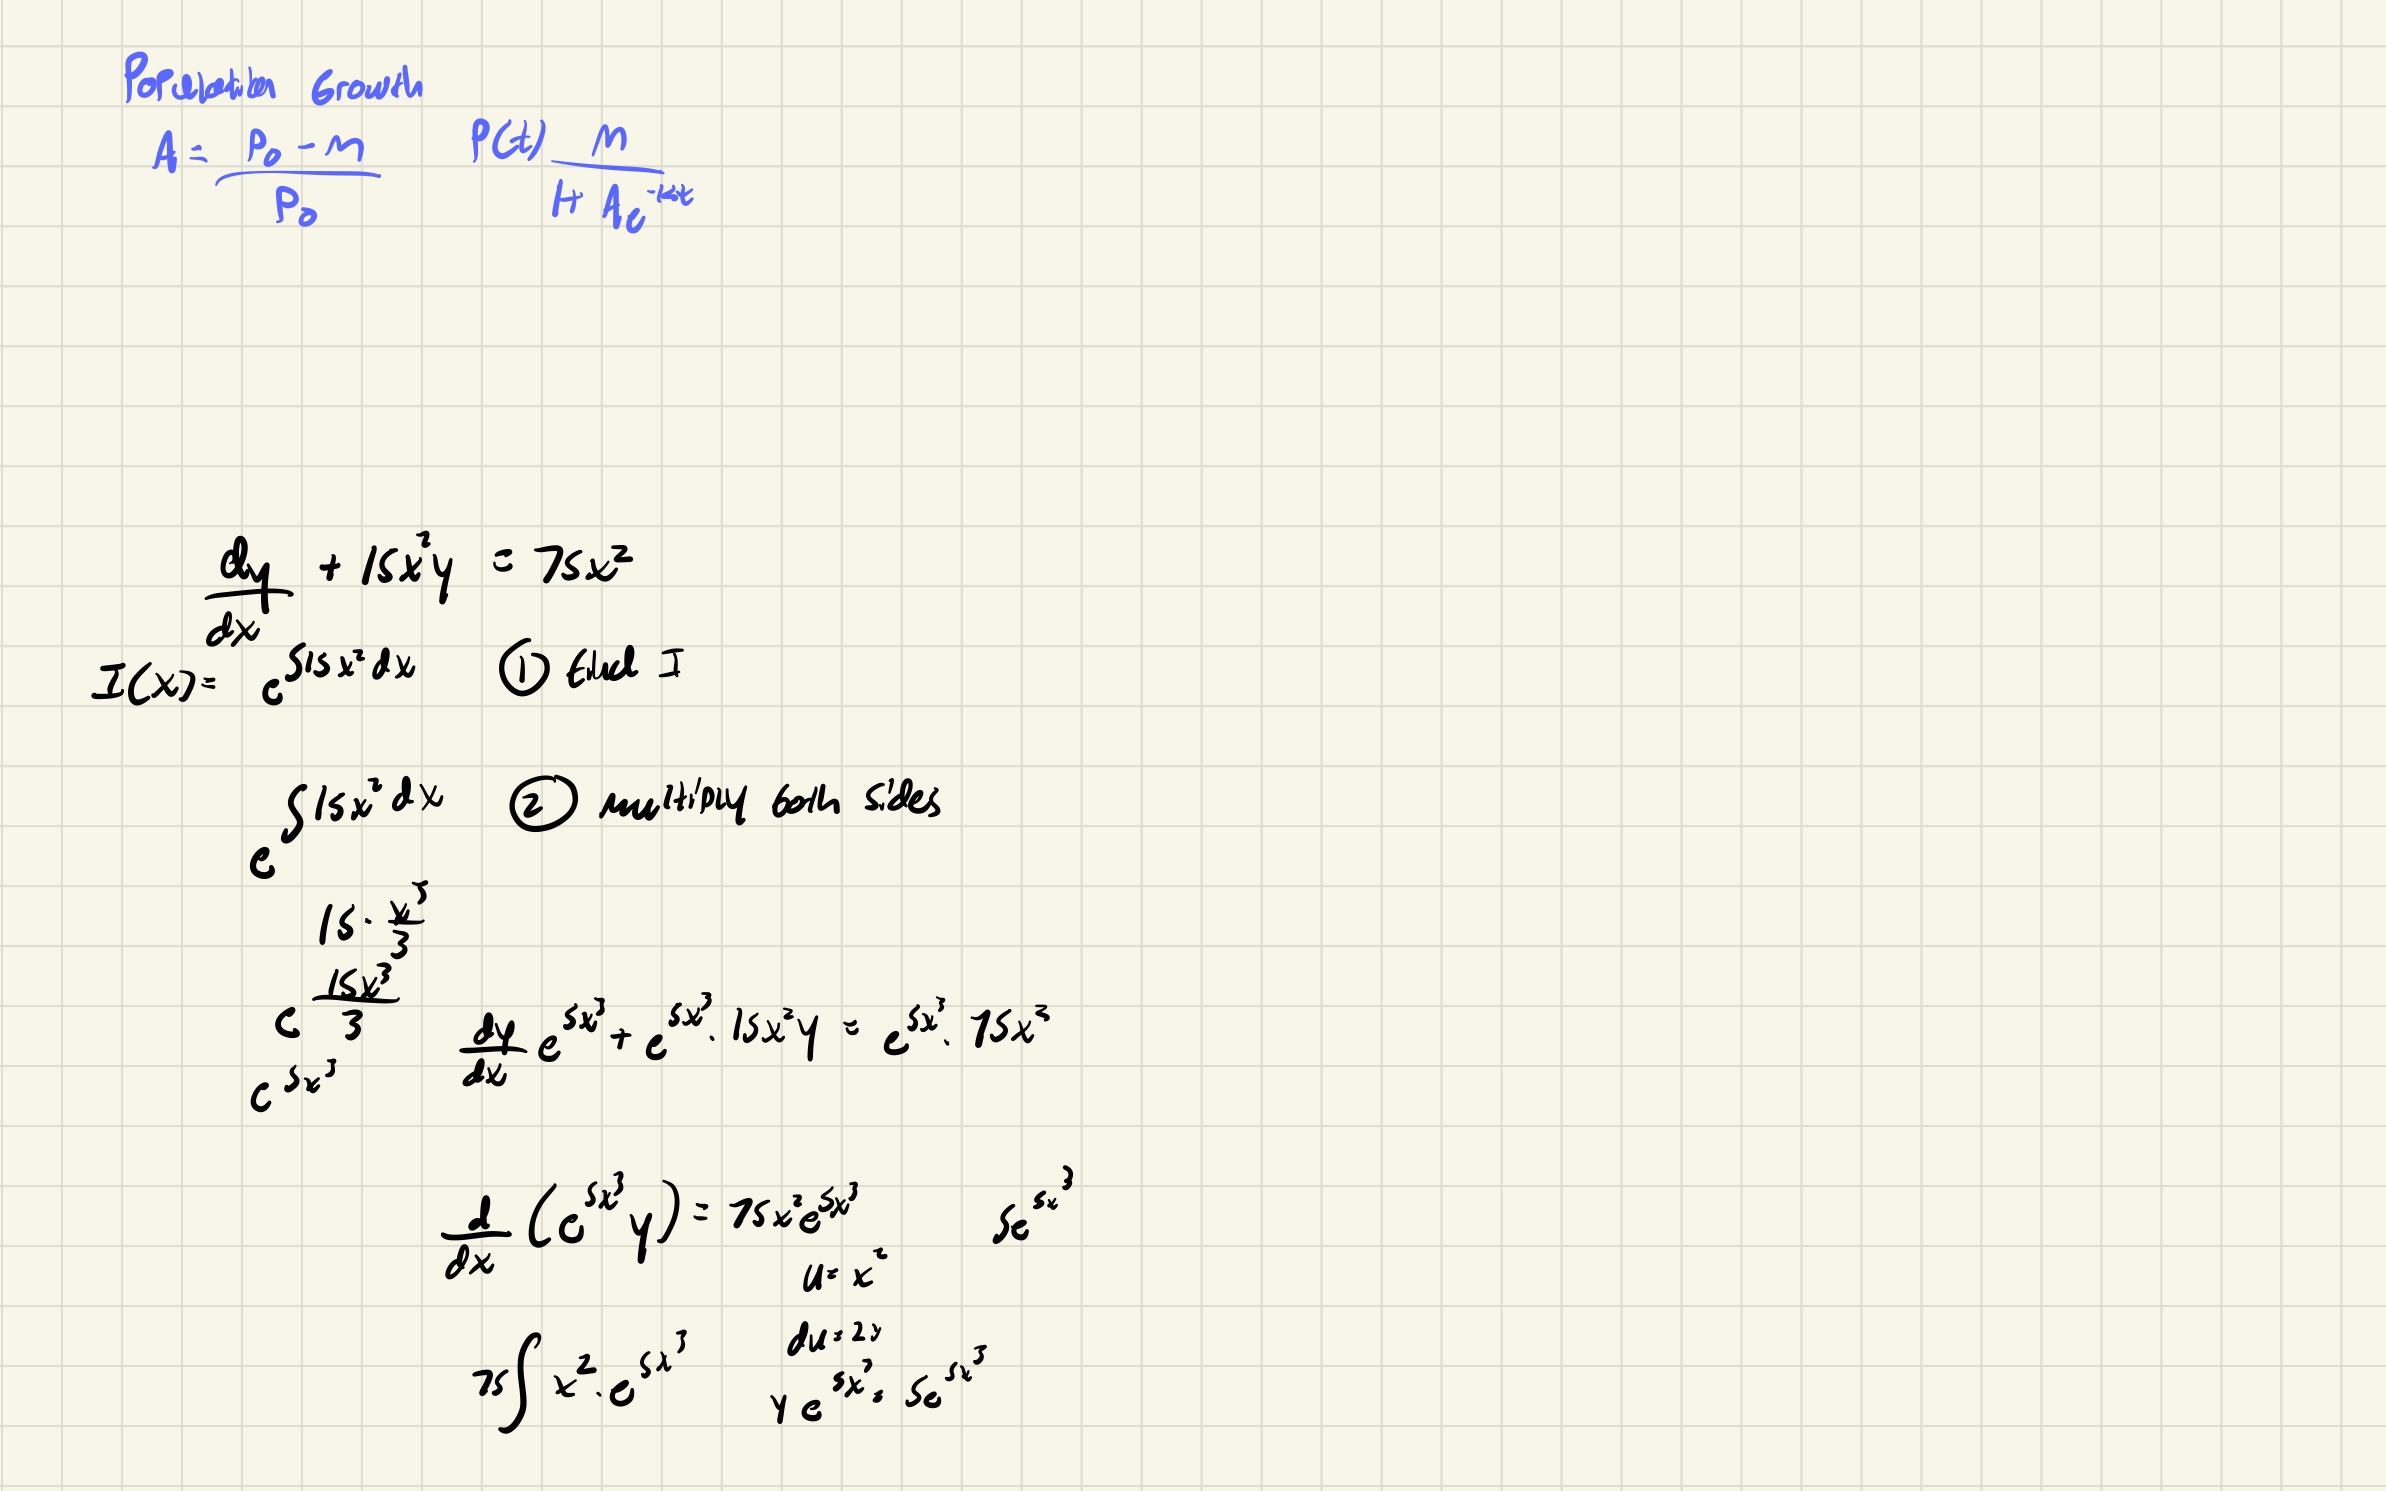 Population Growth
A = P₀ - M / P₀    P(t) M / 1 + Ae^-kt
dy/dx + 15x²y = 75x²
I(x) = e^∫15x² dx    ① find I
e^∫15x² dx    ② multiply both sides
15 · x³/3
e^15x³/3
dy/dx e^5x³ + e^5x³ · 15x²y = e^5x³ · 75x²
e^5x³
d/dx (e^5x³ y) = 75x² e^5x³    5e^5x³
u = x²
du = 2x
75∫x² · e^5x³
y e^5x³ = 5e^5x³